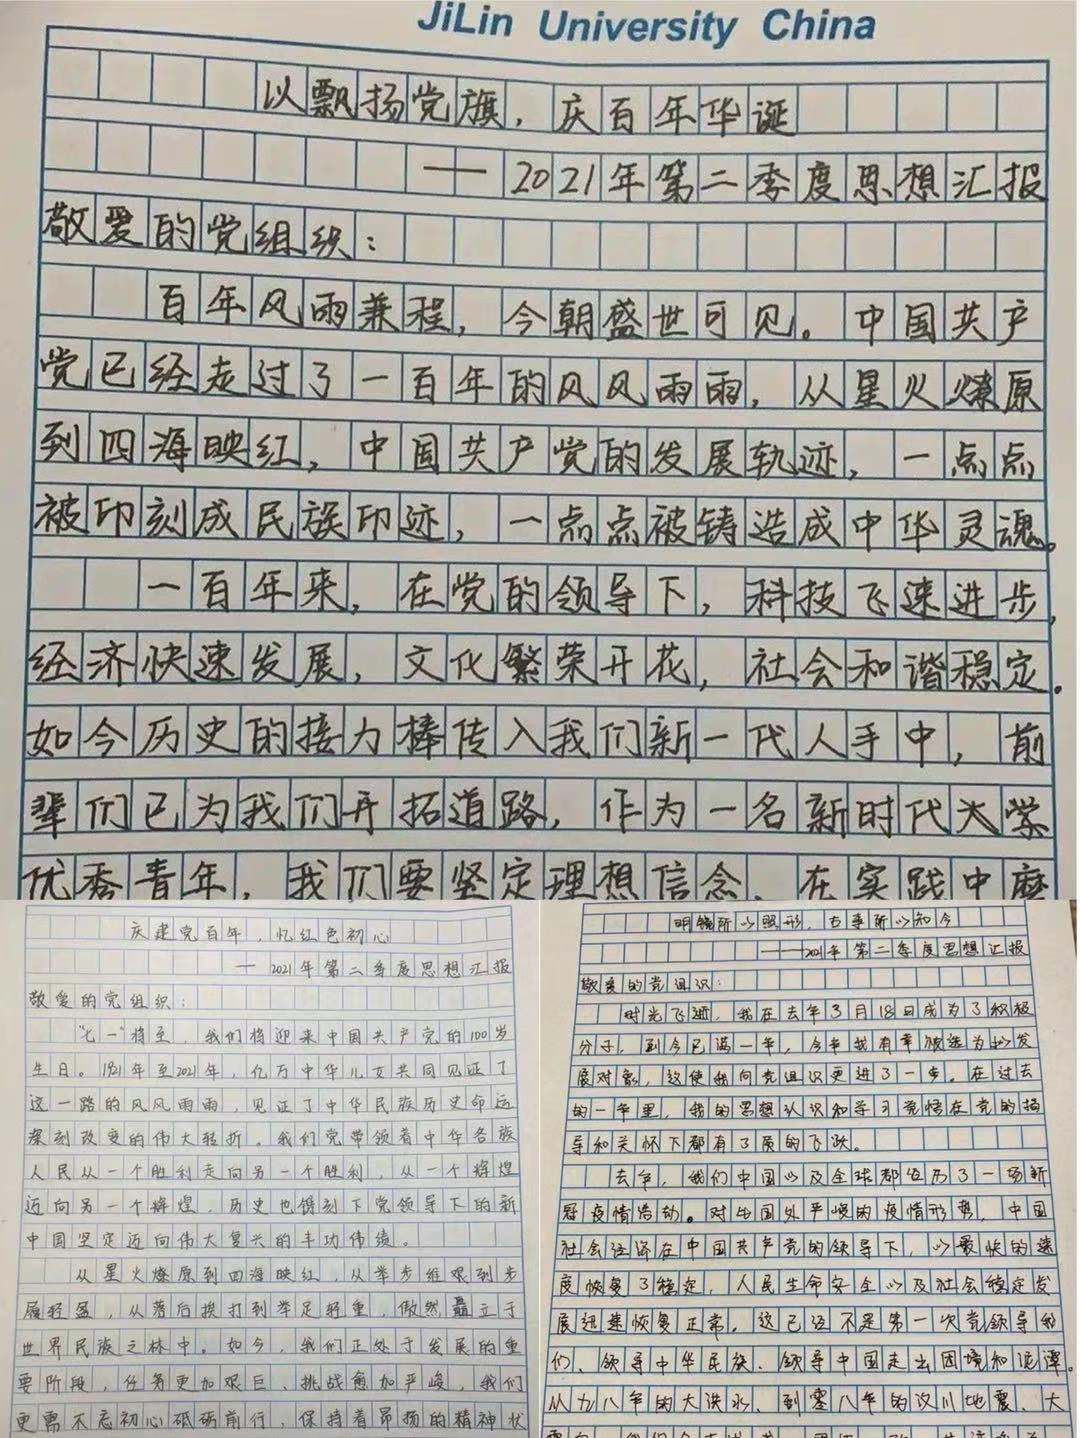 JiLin University China
以飘扬党旗，庆百年华诞
——2021年第二季度思想汇报
敬爱的党组织：
百年风雨兼程，今朝盛世可见。中国共产
党已经走过了一百年的风风雨雨，从星火燎原
到四海映红，中国共产党的发展轨迹，一点点
被印刻成民族印迹，一点点被铸造成中华灵魂。
一百年来，在党的领导下，科技飞速进步，
经济快速发展，文化繁荣开花，社会和谐稳定。
如今历史的接力棒传入我们新一代人手中，前
辈们已为我们开拓道路，作为一名新时代大学
优秀青年，我们要坚定理想信念，在实践中磨
庆建党百年，忆红色初心
—2021年第二季度思想汇报
敬爱的党组织：
“七一”将至，我们将迎来中国共产党的100岁
生日。1921年至2021年，亿万中华儿女共同见证了
这一路的风风雨雨，见证了中华民族历史命运
深刻改变的伟大转折。我们党带领着中华各族
人民从一个胜利走向另一个胜利，从一个辉煌
迈向另一个辉煌，历史也镌刻下党领导下的新
中国坚定迈向伟大复兴的丰功伟绩。
从星火燎原到四海映红，从举步维艰到步
履轻盈，从落后挨打到举足轻重，傲然矗立于
世界民族之林中。如今，我们正处于发展的重
要阶段，任务更加艰巨、挑战愈加严峻，我们
更需不忘初心砥砺前行，保持着昂扬的精神状
明镜所以照形，古事所以知今
——2021年第二季度思想汇报
敬爱的党组识：
时光飞逝，我在去年3月18日成为了积极
分子，到今已满一年，今年我有幸被选为拟发
展对象，这使我向党组识更进了一步。在过去
的一年里，我的思想认识和学习觉悟在党的指
导和关怀下都有了质的飞跃。
去年，我们中国以及全球都经历了一场新
冠疫情浩劫。对比国外严峻的疫情形势，中国
社会经济在中国共产党的领导下，以最快的速
度恢复了稳定，人民生命安全以及社会稳定发
展迅速恢复正常，这已经不是第一次党领导我
们、领导中华民族、领导中国走出困境和泥潭。
从九八年的大洪水，到零八年的汶川地震，大